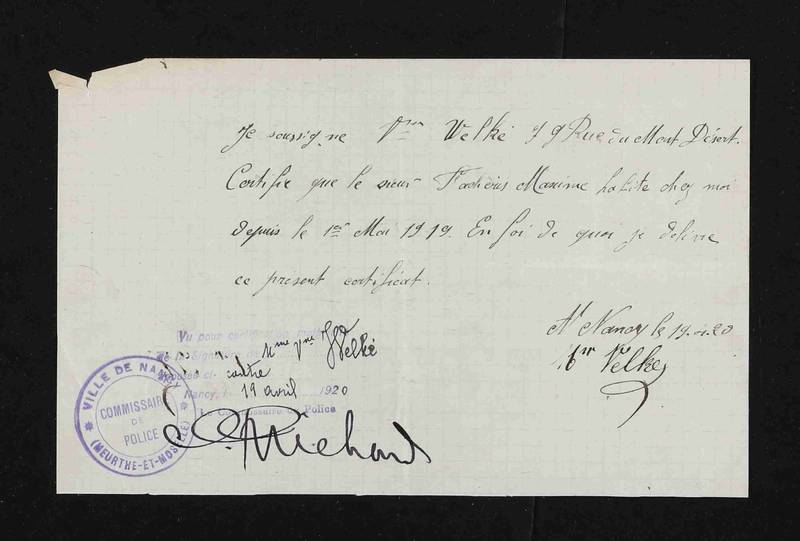 Je soussigne Vve Welké 79 Rue du Mont Désert.
Certifie que le sieur Maxime habite chez moi
depuis le 1er Mai 1919. En foi de quoi je délivre
ce present certificat.
A Nancy le 19.4.20
Vve Velke
Vu pour
Mme Vve Welké
contre
Nancy, 19 avril 1920
Le Commissaire de Police
Richard
VILLE DE NANCY
COMMISSAIRE
DE
POLICE
(MEURTHE-ET-MOSELLE)